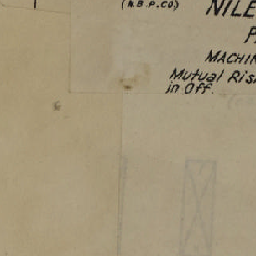 (N.B.P.CO)
NILE
P
MACHIN
Mutual Ris
in Off.